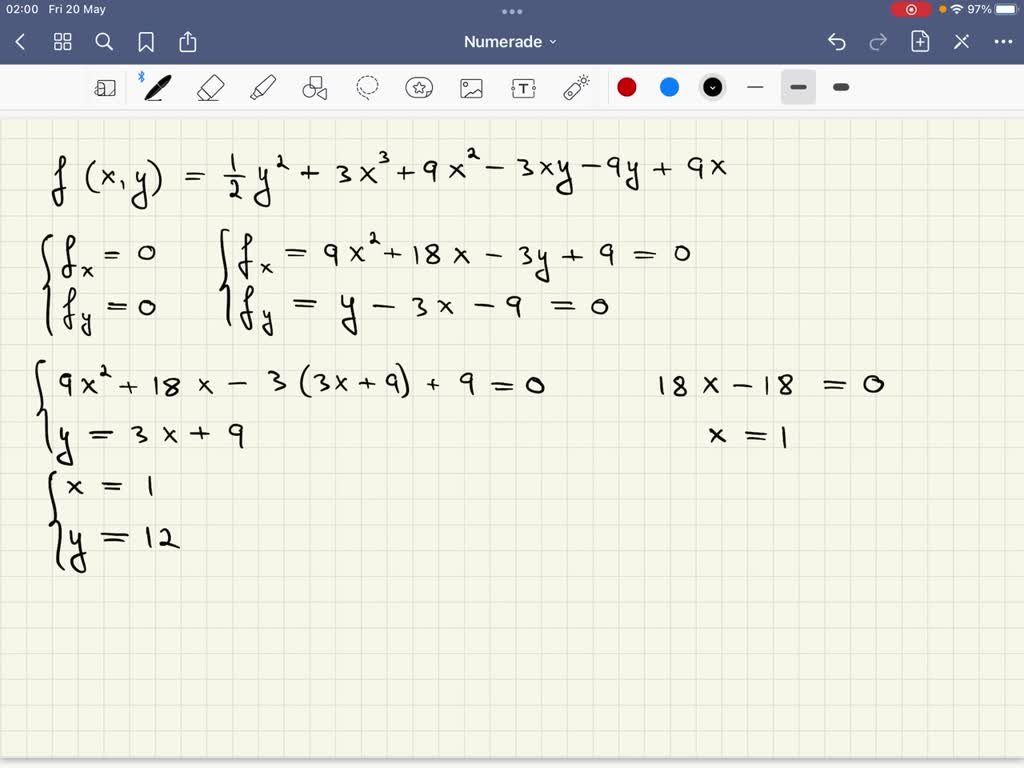 02:00 Fri 20 May 97%
Numerade
f(x,y) = 1/2 y² + 3x³ + 9x² - 3xy - 9y + 9x
{ fx = 0 { fx = 9x² + 18x - 3y + 9 = 0
fy = 0 fy = y - 3x - 9 = 0
{ 9x² + 18x - 3(3x + 9) + 9 = 0 18x - 18 = 0
y = 3x + 9 x = 1
{ x = 1
y = 12